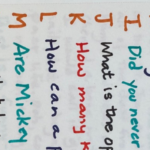 I Did you never
J What is the op
K How many
L How can a
M Are Mickey